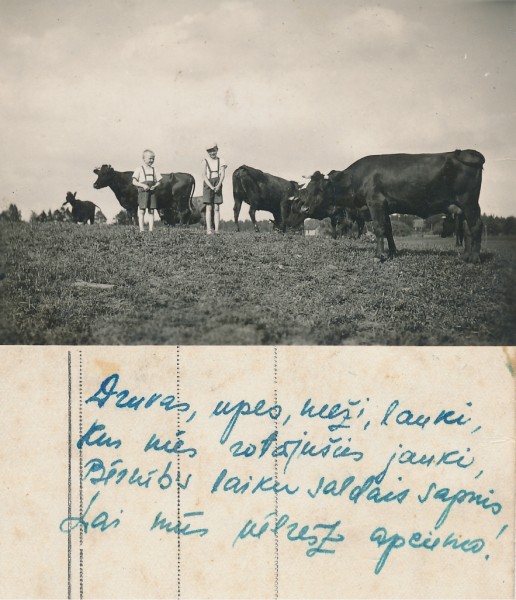 Druvas, upes, meži, lauki,
Kur mēs rotājušies jauki,
Bērnību laiku saldais sapnis
Lai mūs vēlreiz apciemo!